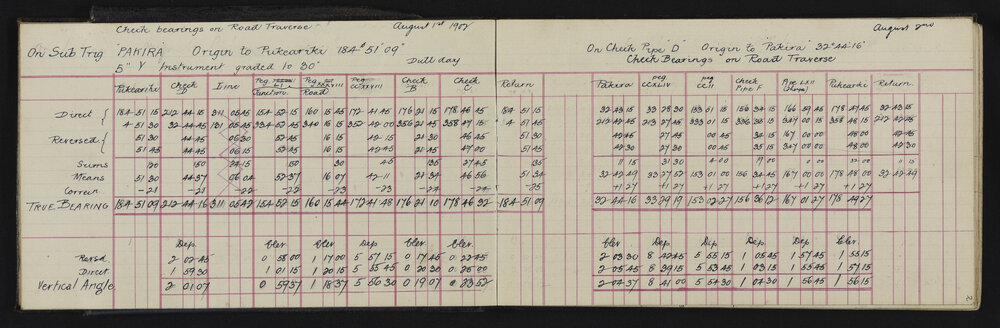 Check bearings on Road Traverse August 1st 1908
On Sub Trig "PAKIRA" Origin to Pukeariki 184° 51' 09"
5" Y Instrument graded to 30" Dull day
Pukeariki Check D Iine Peg Junction Peg XXXVIII Road Peg CCXXVIII Check B Check C Return
Direct { 184-51 15 212-44 15 311 05 45 154-52 15 160 15 45 172 41 45 176 21 15 178 46 45 184 51 15
4 51 30 32 44 45 131 05 45 334 52 45 340 16 15 352 42 00 356 21 45 358 47 15 4 51 45
Reversed { 51 30 44 45 06 30 52 45 16 15 42-15 21 30 46 45 51 30
51 45 44 45 06 15 52 45 16 15 42 45 21 45 47 00 51 45
Sums 120 150 24 15 150 30 45 135 27 45 135
Means 51 30 44 37 06 04 52 37 16 07 42-11 21 34 46 56 51 34
Correcn -21 -21 -22 -22 -23 -23 -24 -24 -25
TRUE BEARING 184-51 09 212-44-16 311 05 42 154-52 15 160 15 44 172 41 48 176 21 10 178 46 32 184-51 09
Dep. Elev. Elev. Dep Elev. Elev.
Revsd. 2 02 45 0 58 00 1 17 00 5 57 15 0 17 45 0 22 45
Direct 1 59 30 1 01 15 1 20 15 5 55 45 0 20 30 0 25 00
Vertical Angle 2 01 07 0 59 37 1 18 37 5 56 30 0 19 07 0 23 52
August 2nd
On Check Pipe "D" Origin to "Pakira" 32° 44' 16"
Check Bearings on Road Traverse
Pakira peg CCXLIV peg CCII check Pipe F Pipe LXII Pukearki Return.
32 43 15 33 28 30 153 01 15 156 34 15 166 59 45 178 47 45 32 43 15
212 42 45 213 27 45 333 01 15 336 35 15 347 00 15 358 48 15 212 42 45
42 45 27 45 00 45 34 15 167 00 00 48 00 42 45
42 30 27 30 00 45 35 15 347 00 00 48 00 42 30
11 15 31 30 4 00 19 00 0 00 32 00 11 15
32-42-49 33 27 52 153 01 00 156 34 45 167 00 00 178 48 00 32-42-49
+1 27 +1 27 +1 27 +1 27 +1 27 +1 27
32-44-16 33 29 19 153 02 27 156 36 12 167 01 27 178 49 27
Elev. Dep. Dep. Elev. Dep. Elev.
2 03 30 8 42 45 5 55 15 1 05 45 1 57 45 1 55 15
2 05 45 8 39 15 5 53 45 1 03 15 1 55 45 1 57 15
2 04 37 8 41 00 5 54 30 1 04 30 1 56 45 1 56 15